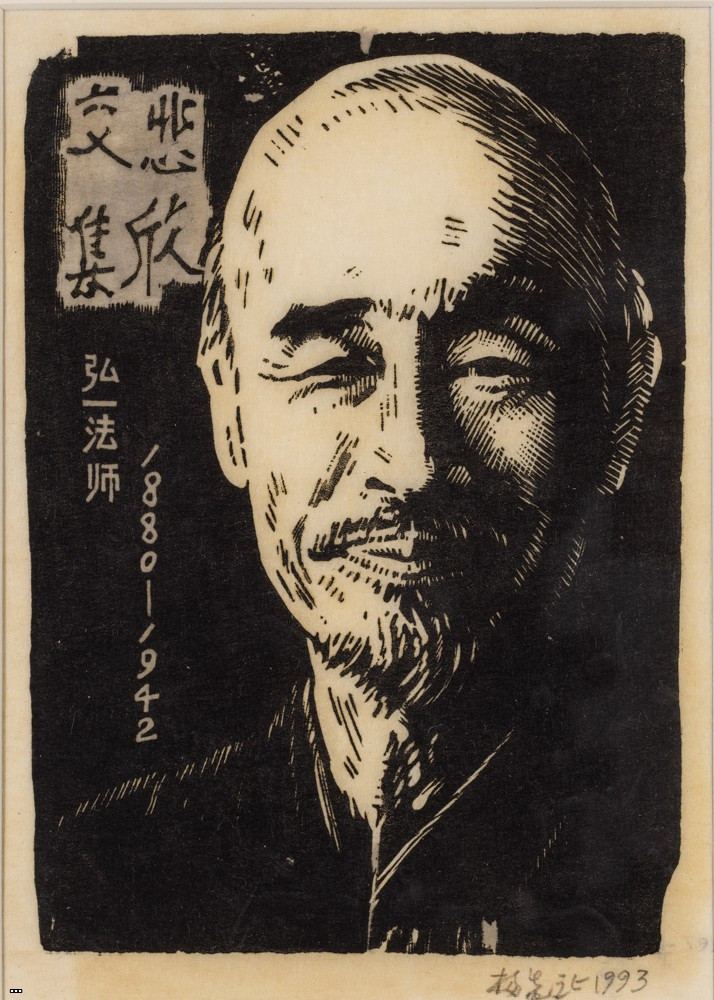 悲欣
交集
弘一法师
1880—1942
杨先让 1993